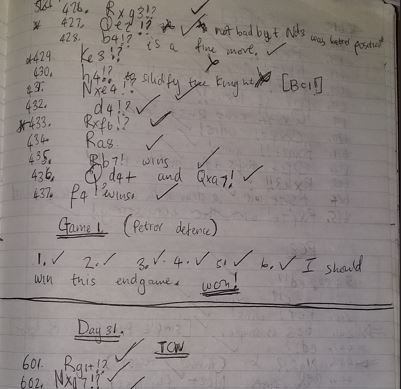 426. Rxg3!? ✓
427. Qe2!? not bad but Nd3 was better positional
428. b4!? is a fine move. ✓
429 Ke3!?
430. h4!? to solidify the Knight [Bc1!]
431. Nxe4!?
432. d4!? ✓
433. Rxf6!? ✓
434 Ra8 ✓
435. Rb7! wins ✓
436. Qd4+ and Qxa7! ✓
437. f4!? wins. ✓
Game 1. (Petrov defence)
1. ✓ 2. ✓ 3. ✓ 4. ✓ 5. ✓ 6. ✓ I should
win this endgame. won!
Day 31.
TCW
601. Rg1+!? ✓
602. Nxg7!? ✓